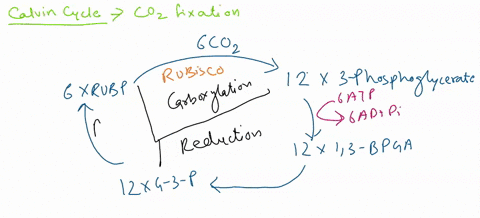 Calvin Cycle → CO2 fixation
6CO2
RUBISCO
6 x RUBP
Carboxylation
12 x 3-Phosphoglycerate
6ATP
6ADP+Pi
Reduction
12 x 1,3-BPGA
12 x G-3-P